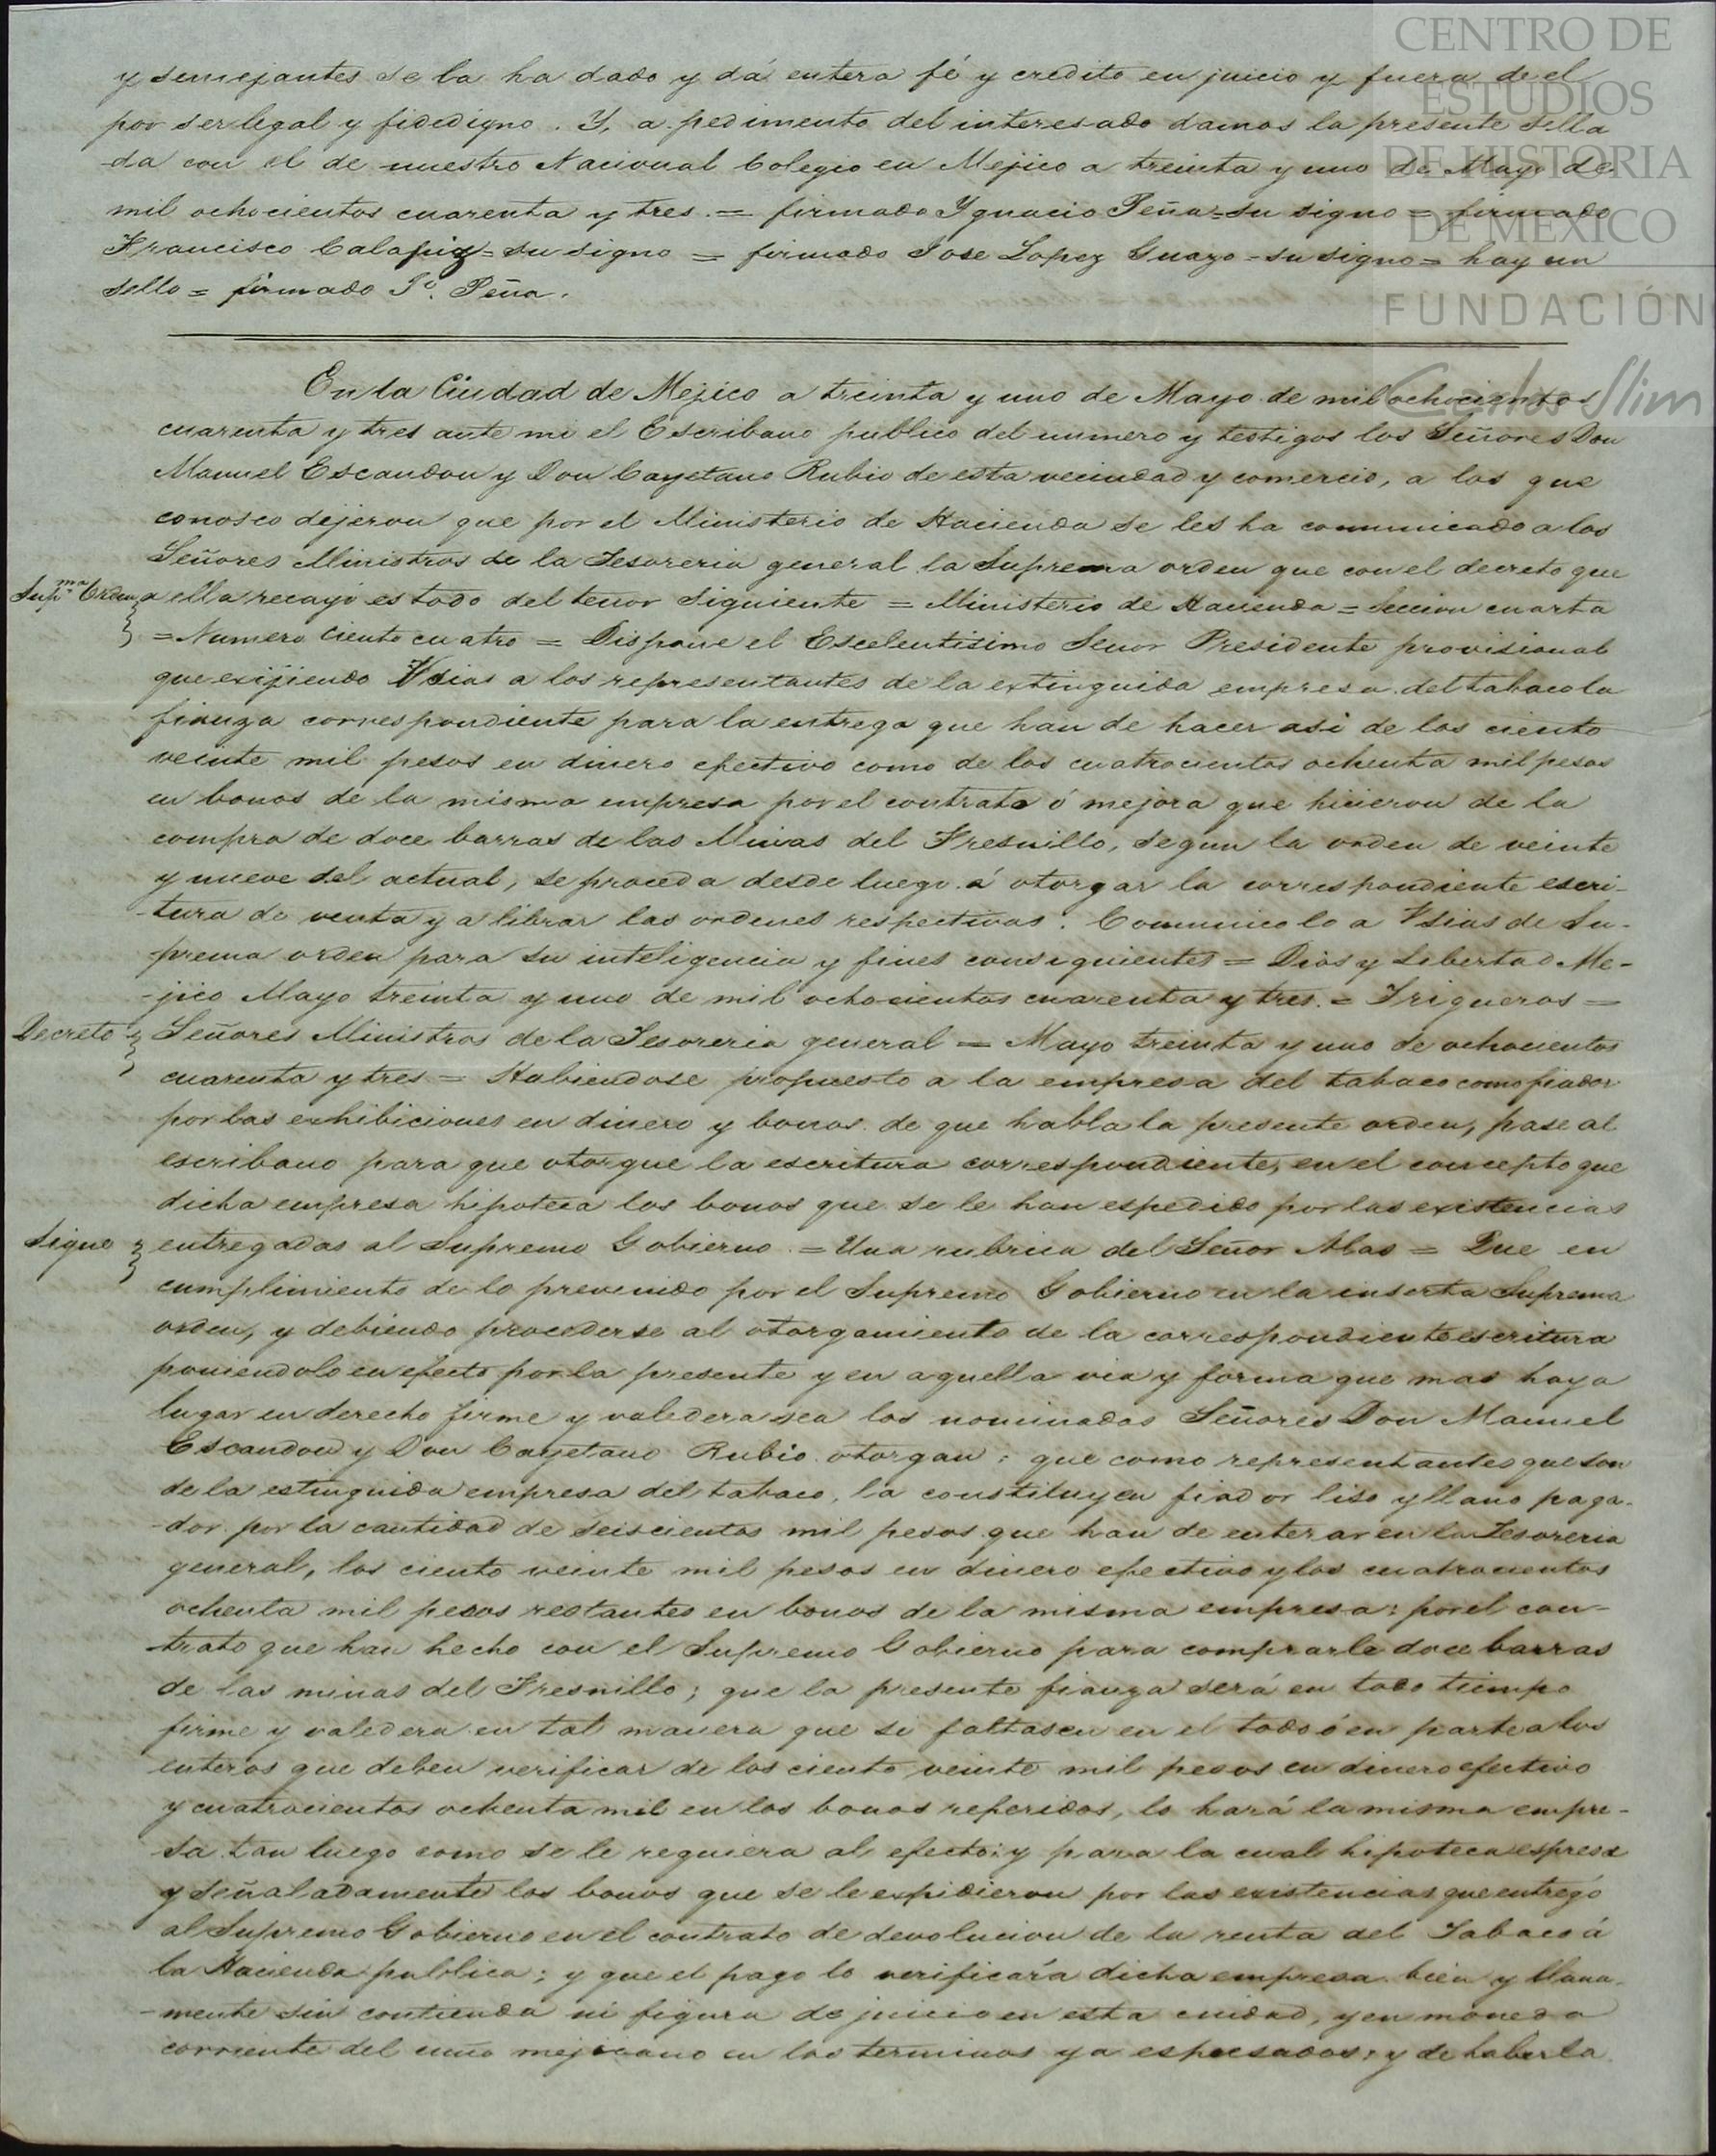 y semejantes se la ha dado y dá entera fé y credito en juicio y fuera de el
por ser legal y fidedigno. Y, a pedimento del interesado damos la presente sella
-da con el de nuestro Nacional Colegio en Mejico a treinta y uno de Mayo de
mil ochocientos cuarenta y tres. = firmado Ygnacio Peña = su signo = firmado
Francisco Calapiz = su signo = firmado Jose Lopez Guazo = su signo = hay un
sello = firmado Yº. Peña.
En la Ciudad de Mejico a treinta y uno de Mayo de mil ochocientos
cuarenta y tres ante mi el Escribano publico del numero y testigos los Señores Don
Manuel Escandon y Don Cayetano Rubio de esta vecindad y comercio, a los que
conosco dijeron que por el Ministerio de Hacienda se les ha comunicado a los
Señores Ministros de la Tesoreria general la Suprema orden que con el decreto que
Supma. Orden a ella recayó es todo del tenor siguiente = Ministerio de Hacienda = Seccion cuarta
= Numero ciento cuatro = Dispone el Escelentisimo Senor Presidente provisional
que exijiendo Vsias a los representantes de la extinguida empresa del tabaco la
fianza correspondiente para la entrega que han de hacer asi de los ciento
veinte mil pesos en dinero efectivo como de los cuatrocientos ochenta mil pesos
en bonos de la misma empresa por el contrato ó mejora que hicieron de la
compra de doce barras de las Minas del Fresnillo, segun la orden de veinte
y nueve del actual, se proceda desde luego á otorgar la correspondiente escri-
-tura de venta y a librar las ordenes respectivas. Comunicolo a Vsias de Su-
-prema orden para su inteligencia y fines consiguientes = Dios y Libertad Me-
-jico Mayo treinta y uno de mil ochocientos cuarenta y tres. = Trigueros =
Decreto Señores Ministros de la Tesoreria general = Mayo treinta y uno de ochocientos
cuarenta y tres = Habiendose propuesto a la empresa del tabaco como fiador
por las exhibiciones en dinero y bonos de que habla la presente orden, pase al
escribano para que otorgue la escritura correspondiente, en el concepto que
dicha empresa hipoteca los bonos que se le han espedido por las existencias
Sigue entregadas al Supremo Gobierno. = Una rubrica del Señor Alas = Que en
cumplimiento de lo prevenido por el Supremo Gobierno en la inserta Suprema
orden, y debiendo procederse al otorgamiento de la correspondiente escritura
poniendolo en efecto por la presente y en aquella via y forma que mas haya
lugar en derecho firme y valedera sea los nominados Señores Don Manuel
Escandon y Don Cayetano Rubio otorgan: que como representantes que son
de la estinguida empresa del tabaco, la constituyen fiador liso y llano paga-
-dor por la cantidad de seiscientos mil pesos que han de enterar en la Tesoreria
general, los ciento veinte mil pesos en dinero efectivo y los cuatrocientos
ochenta mil pesos restantes en bonos de la misma empresa: por el con-
-trato que han hecho con el Supremo Gobierno para comprarle doce barras
de las minas del Fresnillo; que la presente fianza será en todo tiempo
firme y valedera en tal manera que si faltasen en el todo ó en parte a los
enteros que deben verificar de los ciento veinte mil pesos en dinero efectivo
y cuatrocientos ochenta mil en los bonos referidos, lo hará la misma empre-
-sa tan luego como se le requiera al efecto: y para la cual hipoteca espresa
y señaladamente los bonos que se le expidieron por las existencias que entregó
al Supremo Gobierno en el contrato de devolucion de la renta del Tabaco á
la Hacienda publica; y que el pago lo verificaría dicha empresa bien y llana-
-mente sin contienda ni figura de juicio en esta ciudad, y en moneda
corriente del cuño mejicano en los terminos ya espresados; y de haberla
CENTRO DE
ESTUDIOS
DE HISTORIA
DE MEXICO
FUNDACIÓN
Carlos Slim